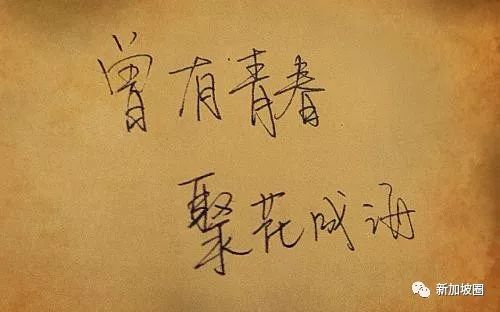 曾有青春
聚花成海
新加坡圈